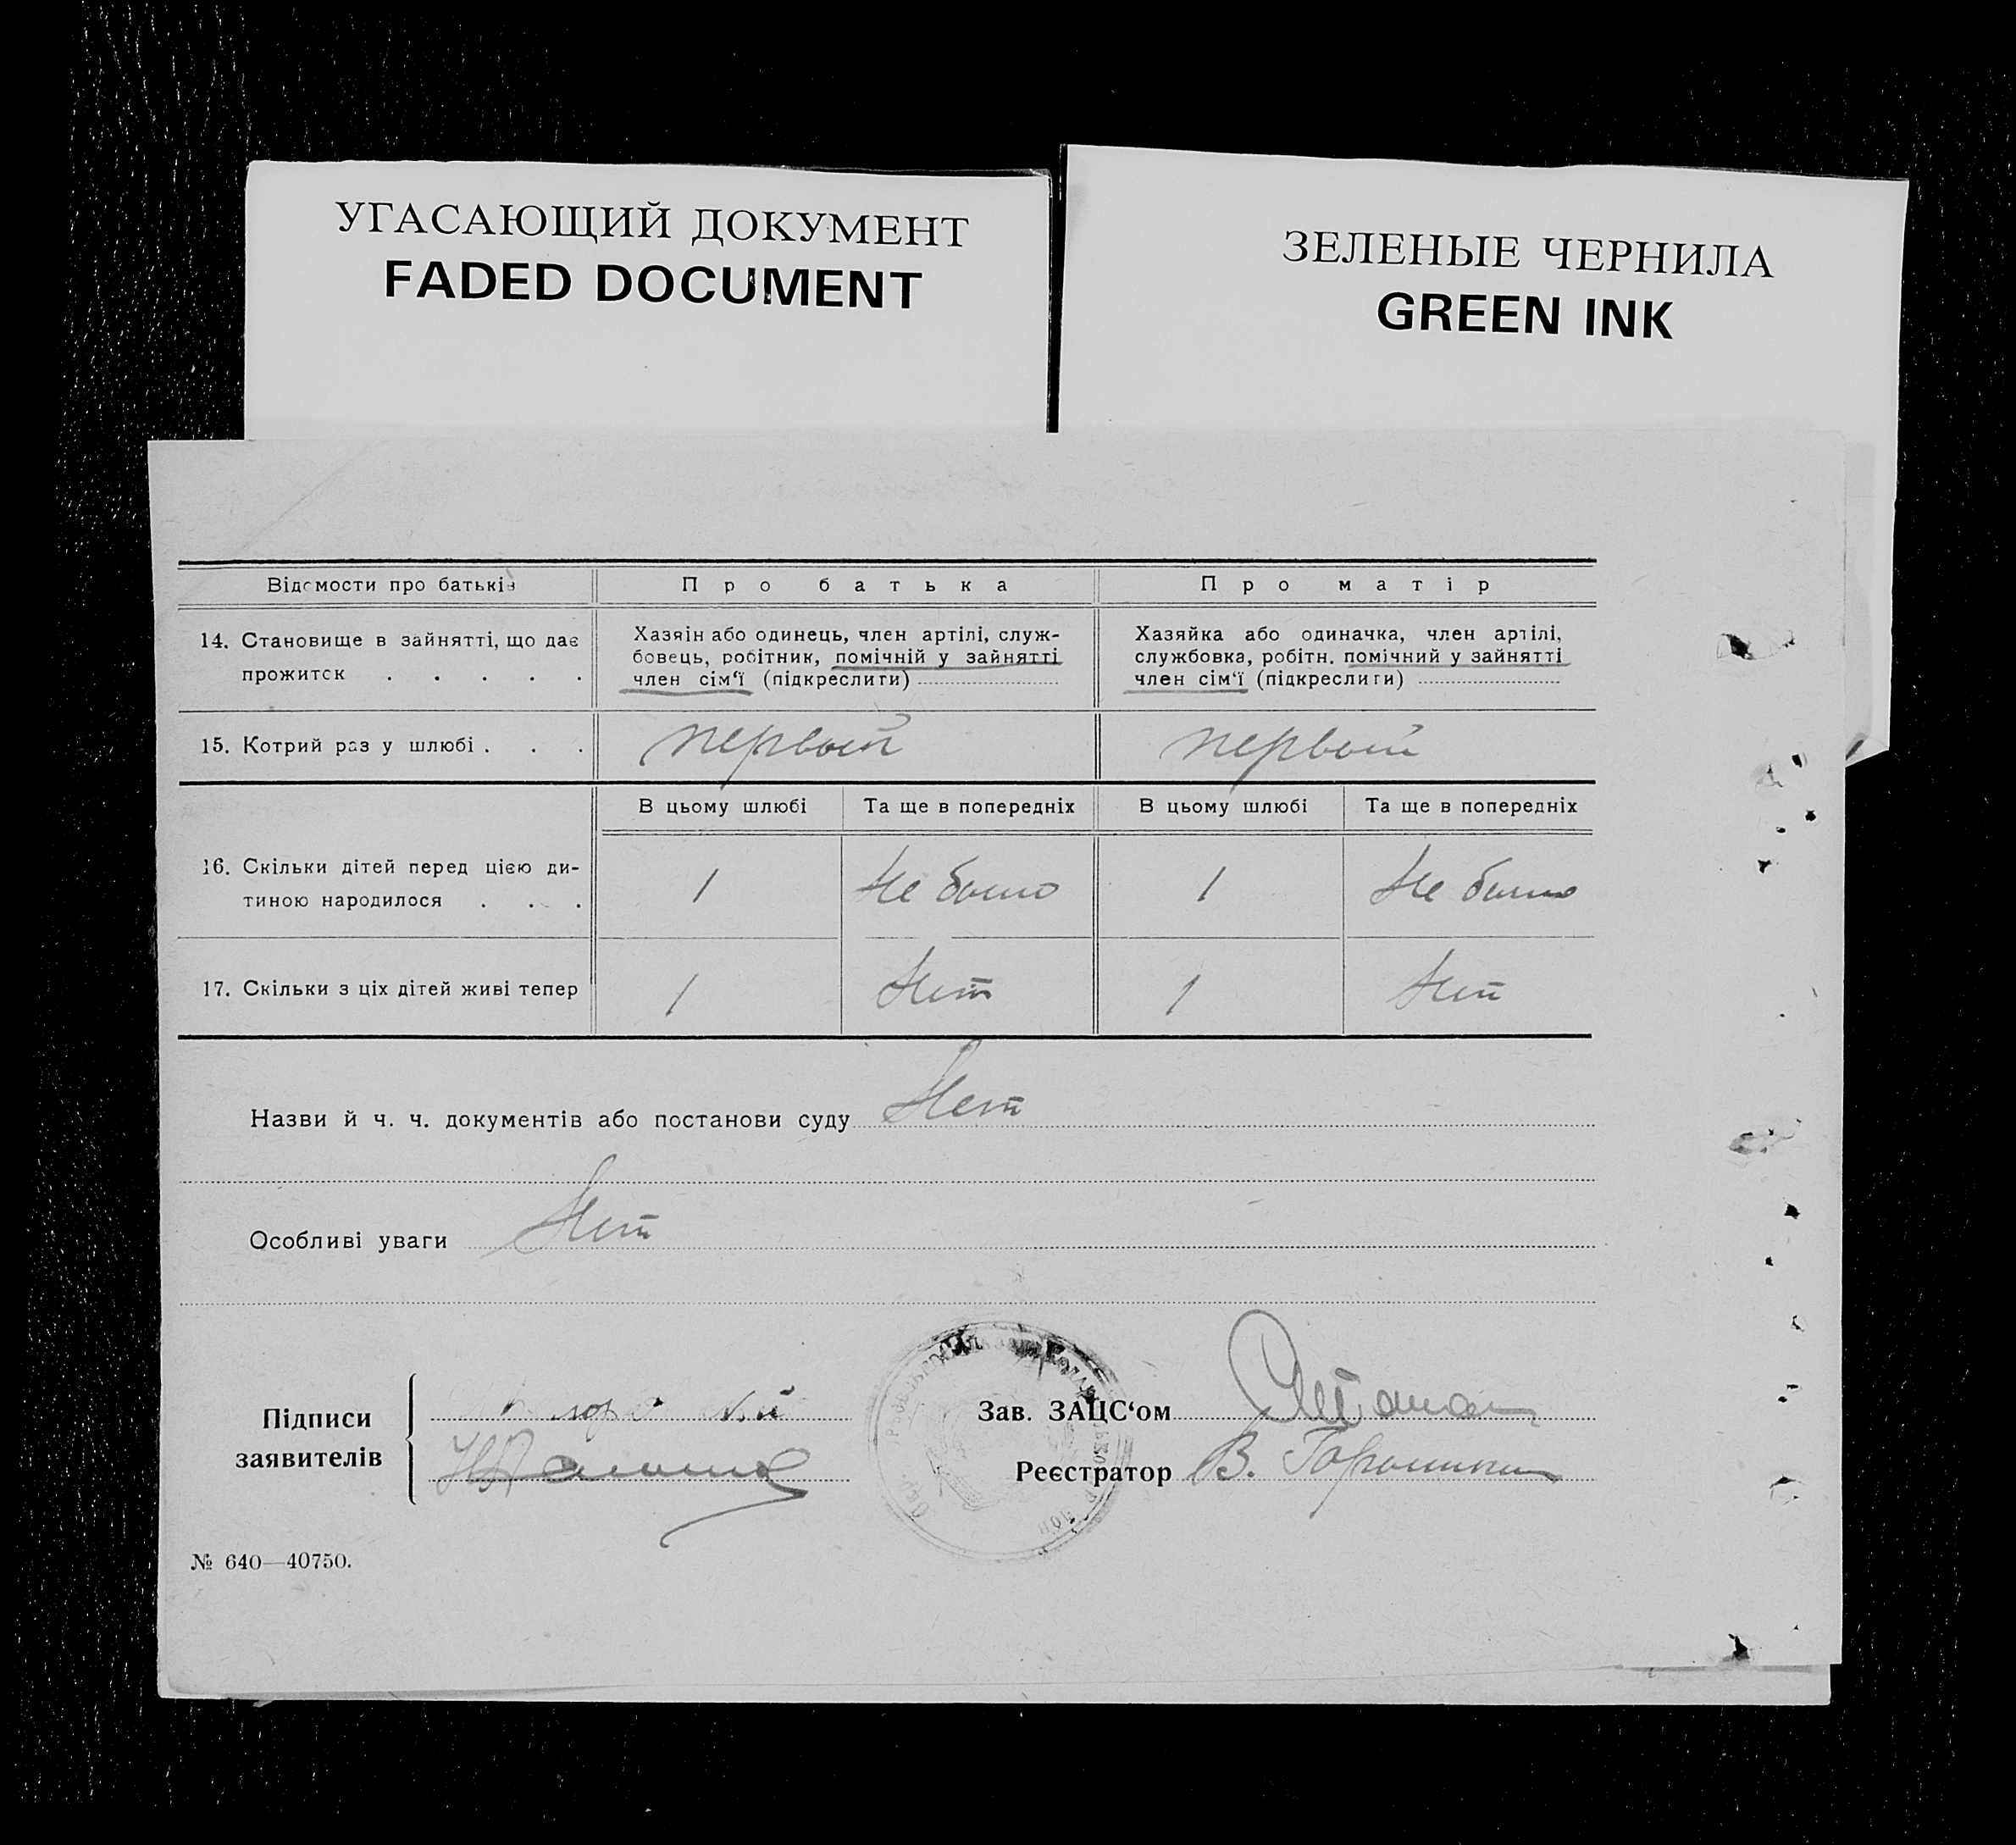 УГАСАЮЩИЙ ДОКУМЕНТ
FADED DOCUMENT
ЗЕЛЕНЫЕ ЧЕРНИЛА
GREEN INK
Відомости про батьків
Про батька
Про матір
14. Становище в зайнятті, що дає
прожиток . . . . .
Хазяін або одинець, член артілі, служ-
бовець, робітник, помічній у зайнятті
член сім‘ї (підкреслити)
Хазяйка або одиначка, член артілі,
службовка, робітн. помічний у зайнятті
член сім‘ї (підкреслити)
15. Котрий раз у шлюбі . . .
первый
первый
В цьому шлюбі
Та ще в попередніх
В цьому шлюбі
Та ще в попередніх
16. Скільки дітей перед цією ди-
тиною народилося . . .
1
Не было
1
Не было
17. Скільки з ціх дітей живі тепер
1
Нет
1
Нет
Назви й ч. ч. документів або постанови суду Нет
Особливі уваги Нет
Підписи
заявителів
Зав. ЗАЦС‘ом
Реєстратор В.
№ 640—40750.